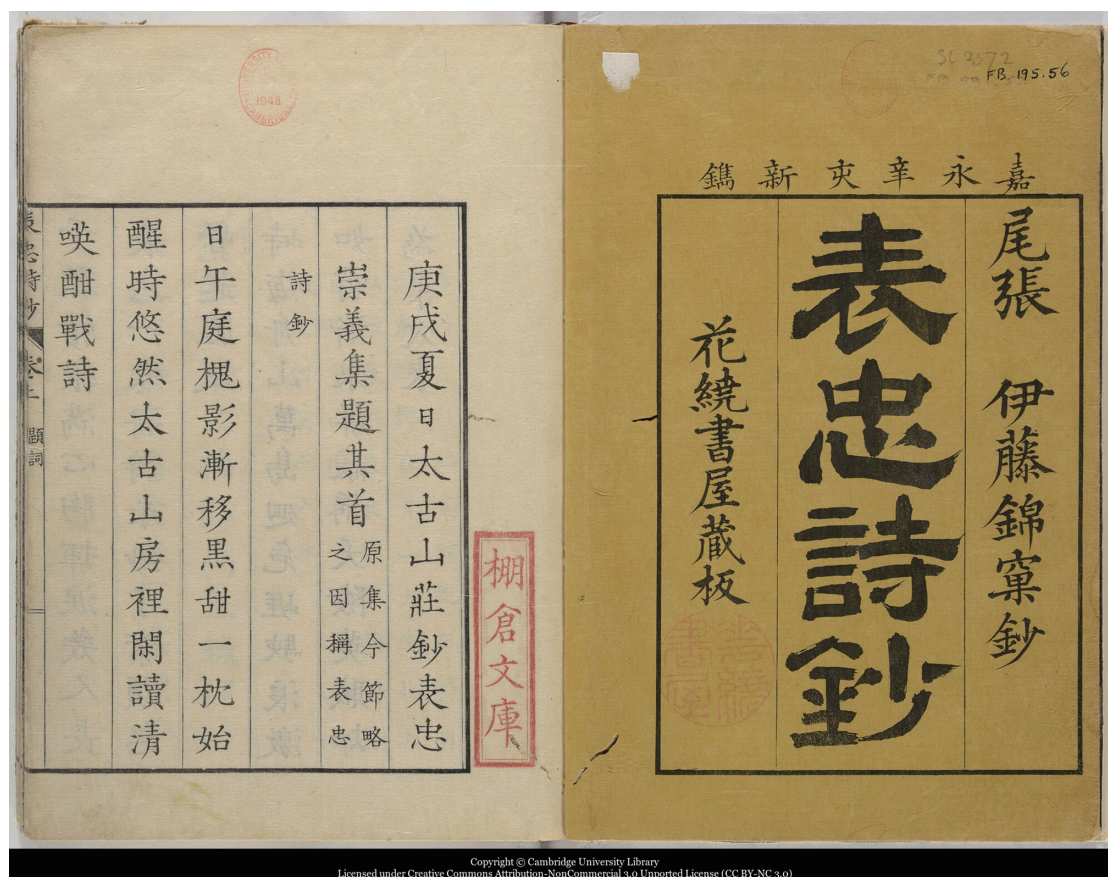 SC 2572
FB.195.56
嘉永辛亥新鐫
尾張 伊藤錦窠鈔
表忠詩鈔
花繞書屋蔵板
棚倉文庫
庚戌夏日太古山莊鈔表忠
崇義集題其首 原集今節略
之因稱表忠
詩鈔
日午庭槐影漸移黑甜一枕始
醒時悠然太古山房裡閑讀清
暎酣戰詩
表忠詩鈔 卷上 題詞 一
1948
Copyright © Cambridge University Library
Licensed under Creative Commons Attribution-NonCommercial 3.0 Unported License (CC BY-NC 3.0)